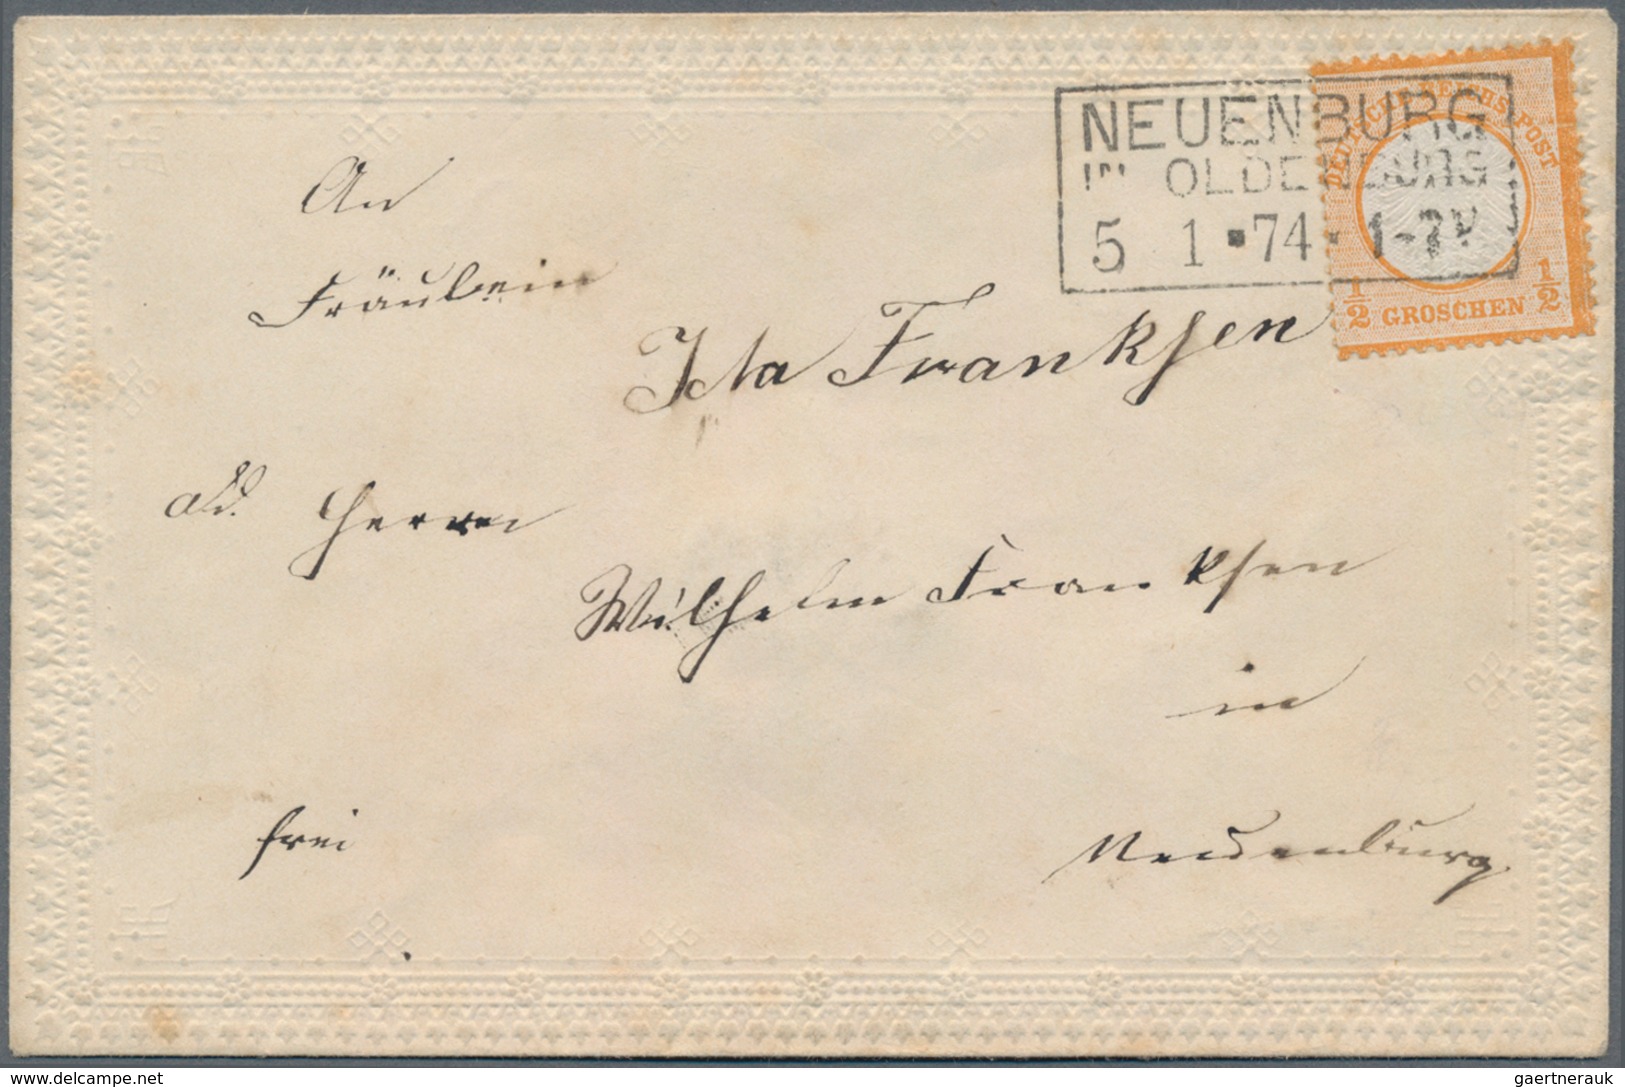 NEUENBURG
IN OLDENBURG
5 1 ▪74▪ 1-7V
DEUTSCHE REICHS-POST
1/2 GROSCHEN 1/2
An
Fräulein
Ida Franksen
Herrn
Wilhelm Franksen
in
frei
Neuenburg
www.delcampe.net
gaertnerauk